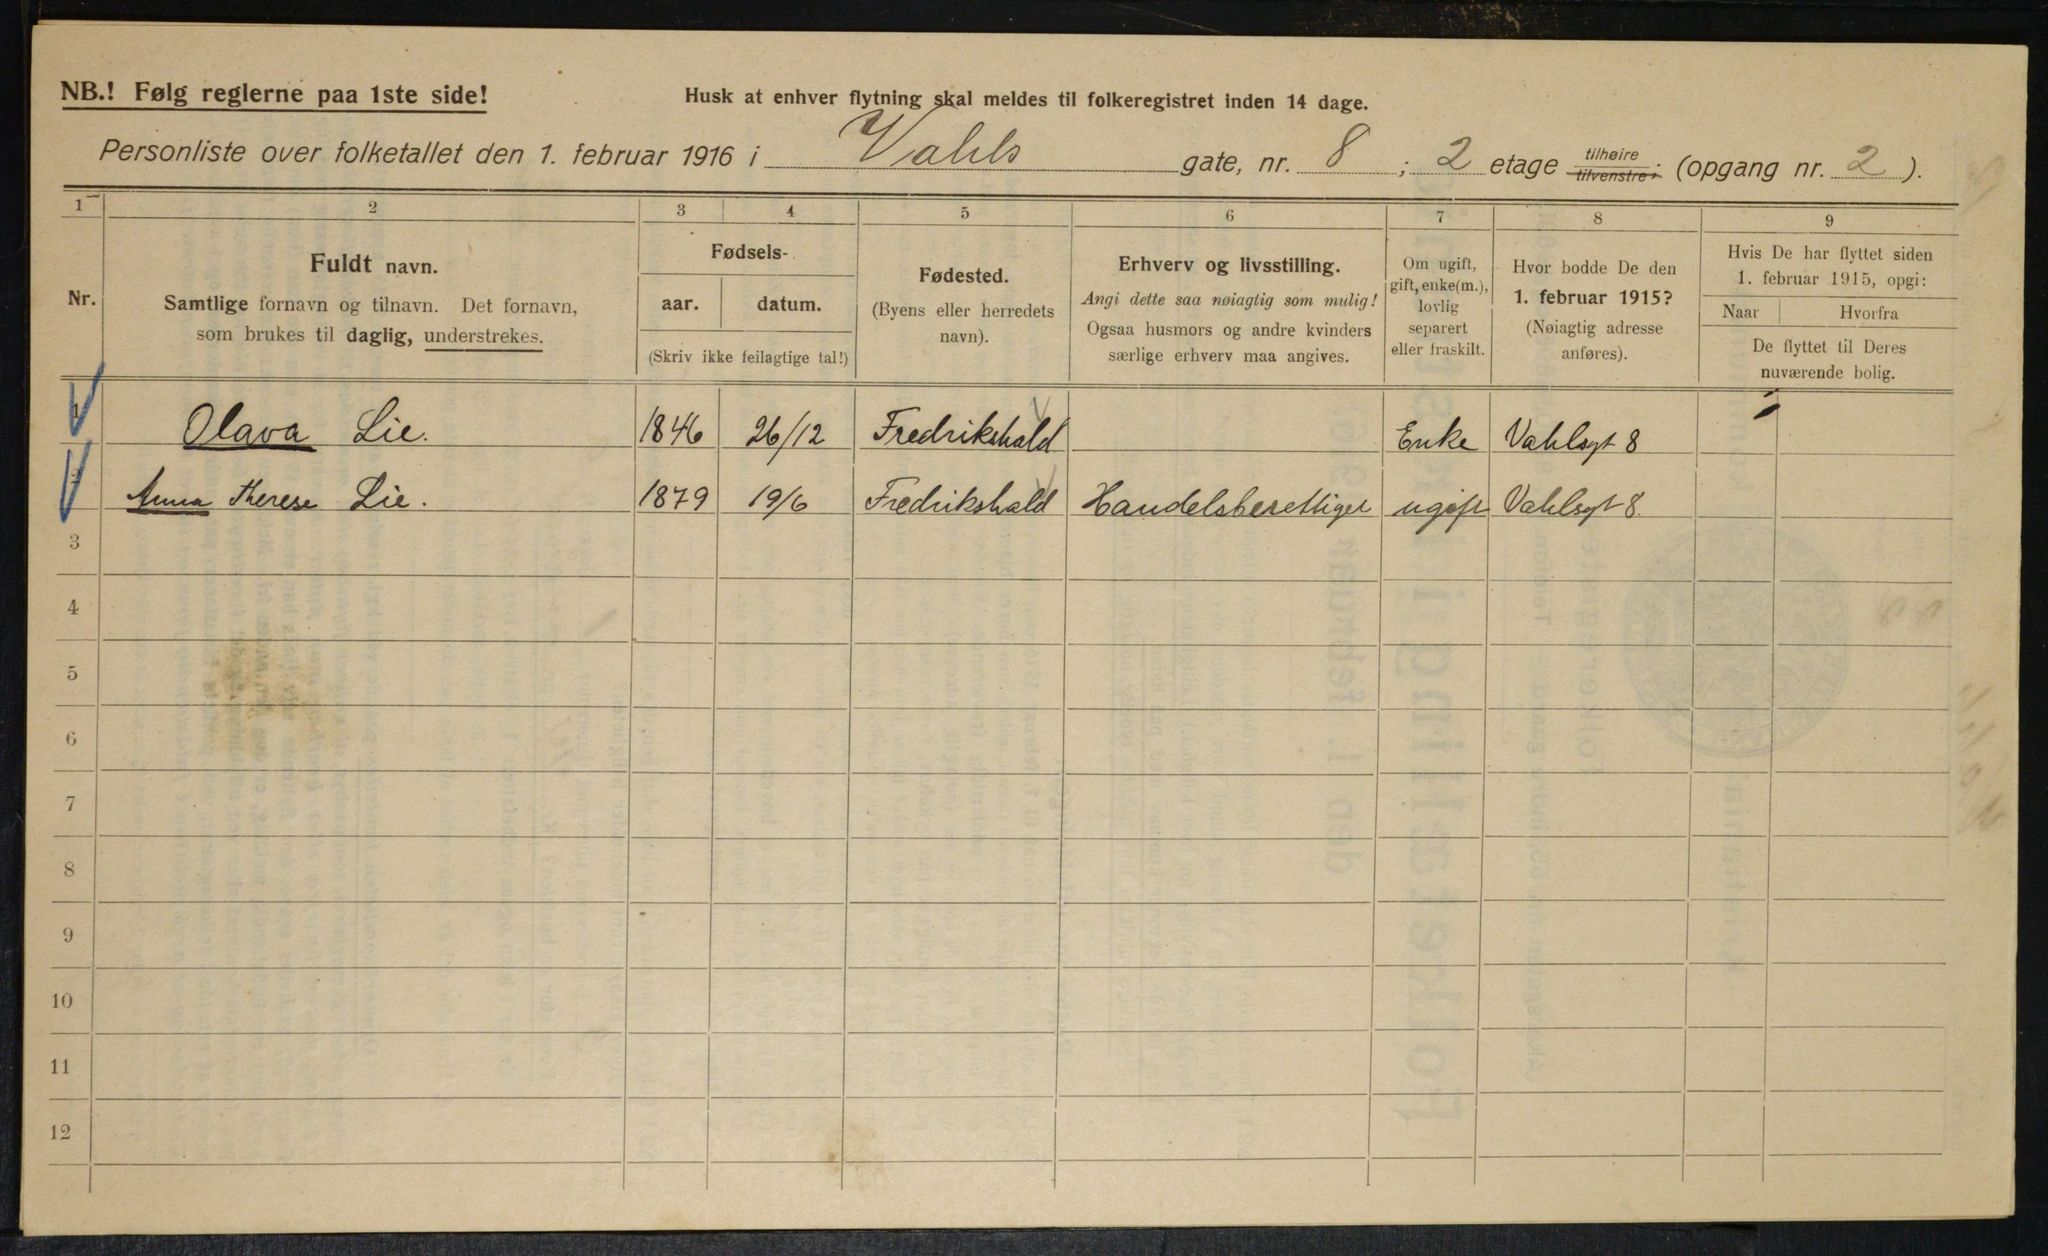 NB.! Følg reglerne paa 1ste side!
Husk at enhver flytning skal meldes til folkeregistret inden 14 dage.
Personliste over folketallet den 1. februar 1916 i Vahls gate, nr. 8; 2 etage tilhøire tilvenstre; (opgang nr. 2).
1 2 3 4 5 6 7 8 9
Nr.
Fuldt navn.
Samtlige fornavn og tilnavn. Det fornavn,
som brukes til daglig, understrekes.
Fødsels-
aar. datum.
(Skriv ikke feilagtige tal!)
Fødested.
(Byens eller herredets
navn).
Erhverv og livsstilling.
Angi dette saa nøiagtig som mulig!
Ogsaa husmors og andre kvinders
særlige erhverv maa angives.
Om ugift,
gift, enke(m.),
lovlig
separert
eller fraskilt.
Hvor bodde De den
1. februar 1915?
(Nøiagtig adresse
anføres).
Hvis De har flyttet siden
1. februar 1915, opgi:
Naar Hvorfra
De flyttet til Deres
nuværende bolig.
1 Olava Lie. 1846 26/12 Fredrikshald Enke Vahlsgt 8
2 Anna Therese Lie. 1879 19/6 Fredrikshald Handelsberettiget ugift Vahlsgt 8.
3
4
5
6
7
8
9
10
11
12